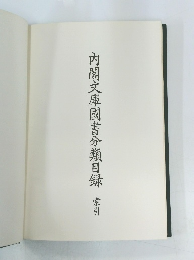 内閣文庫國書分類目録
索引